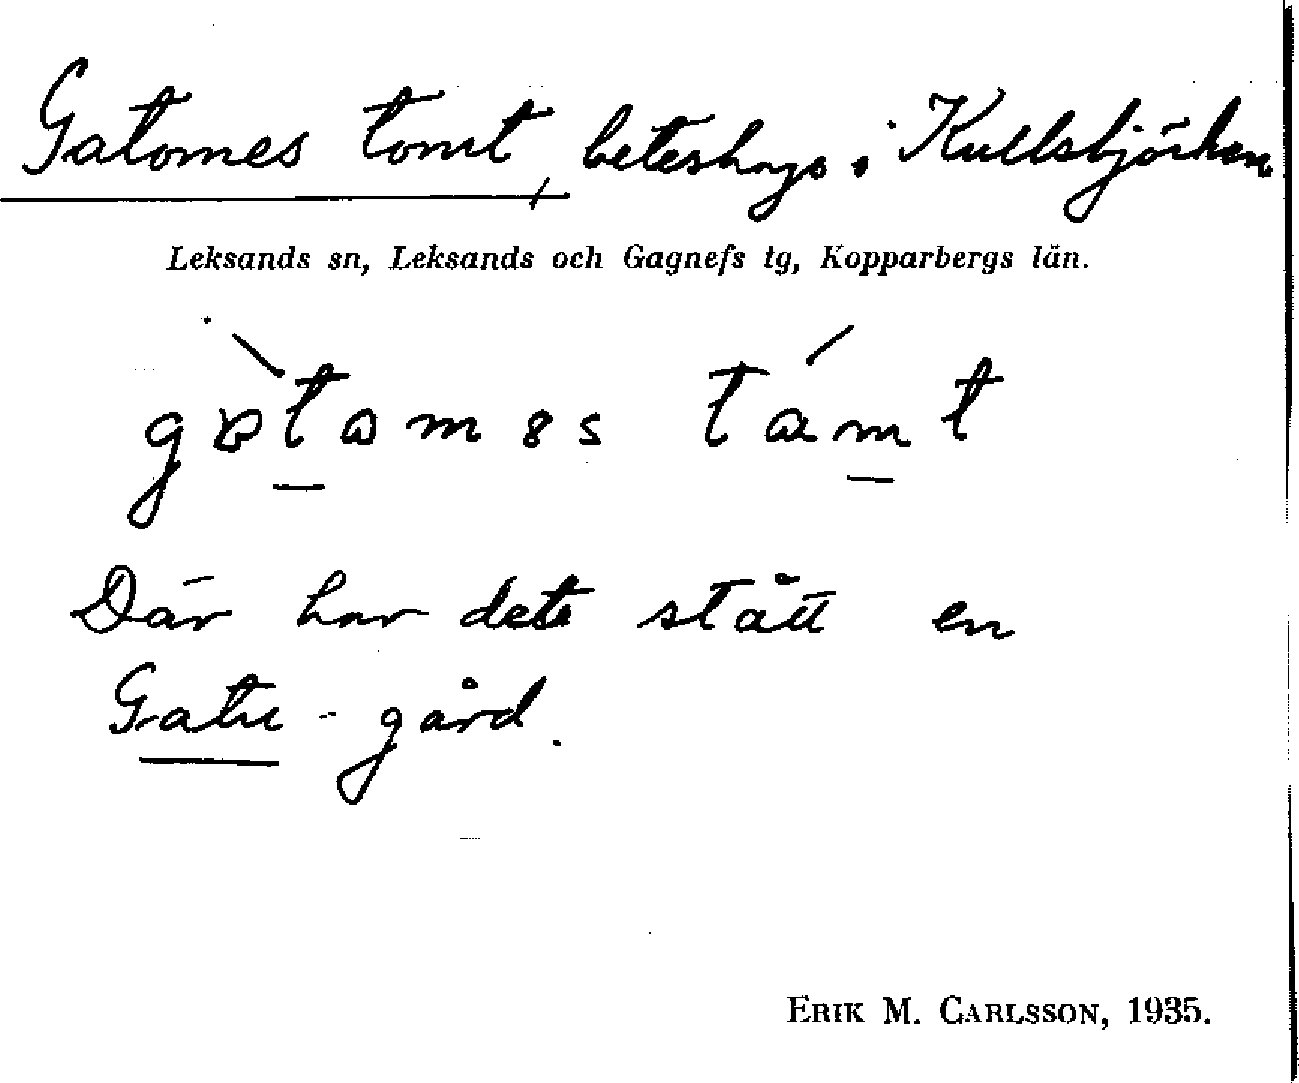 Gatomes tomt, beteshage i Kullsbjörken
Leksands sn, Leksands och Gagnefs tg, Kopparbergs län.
Där har det stått en
Gatu-gård.
ERIK M. CARLSSON, 1935.